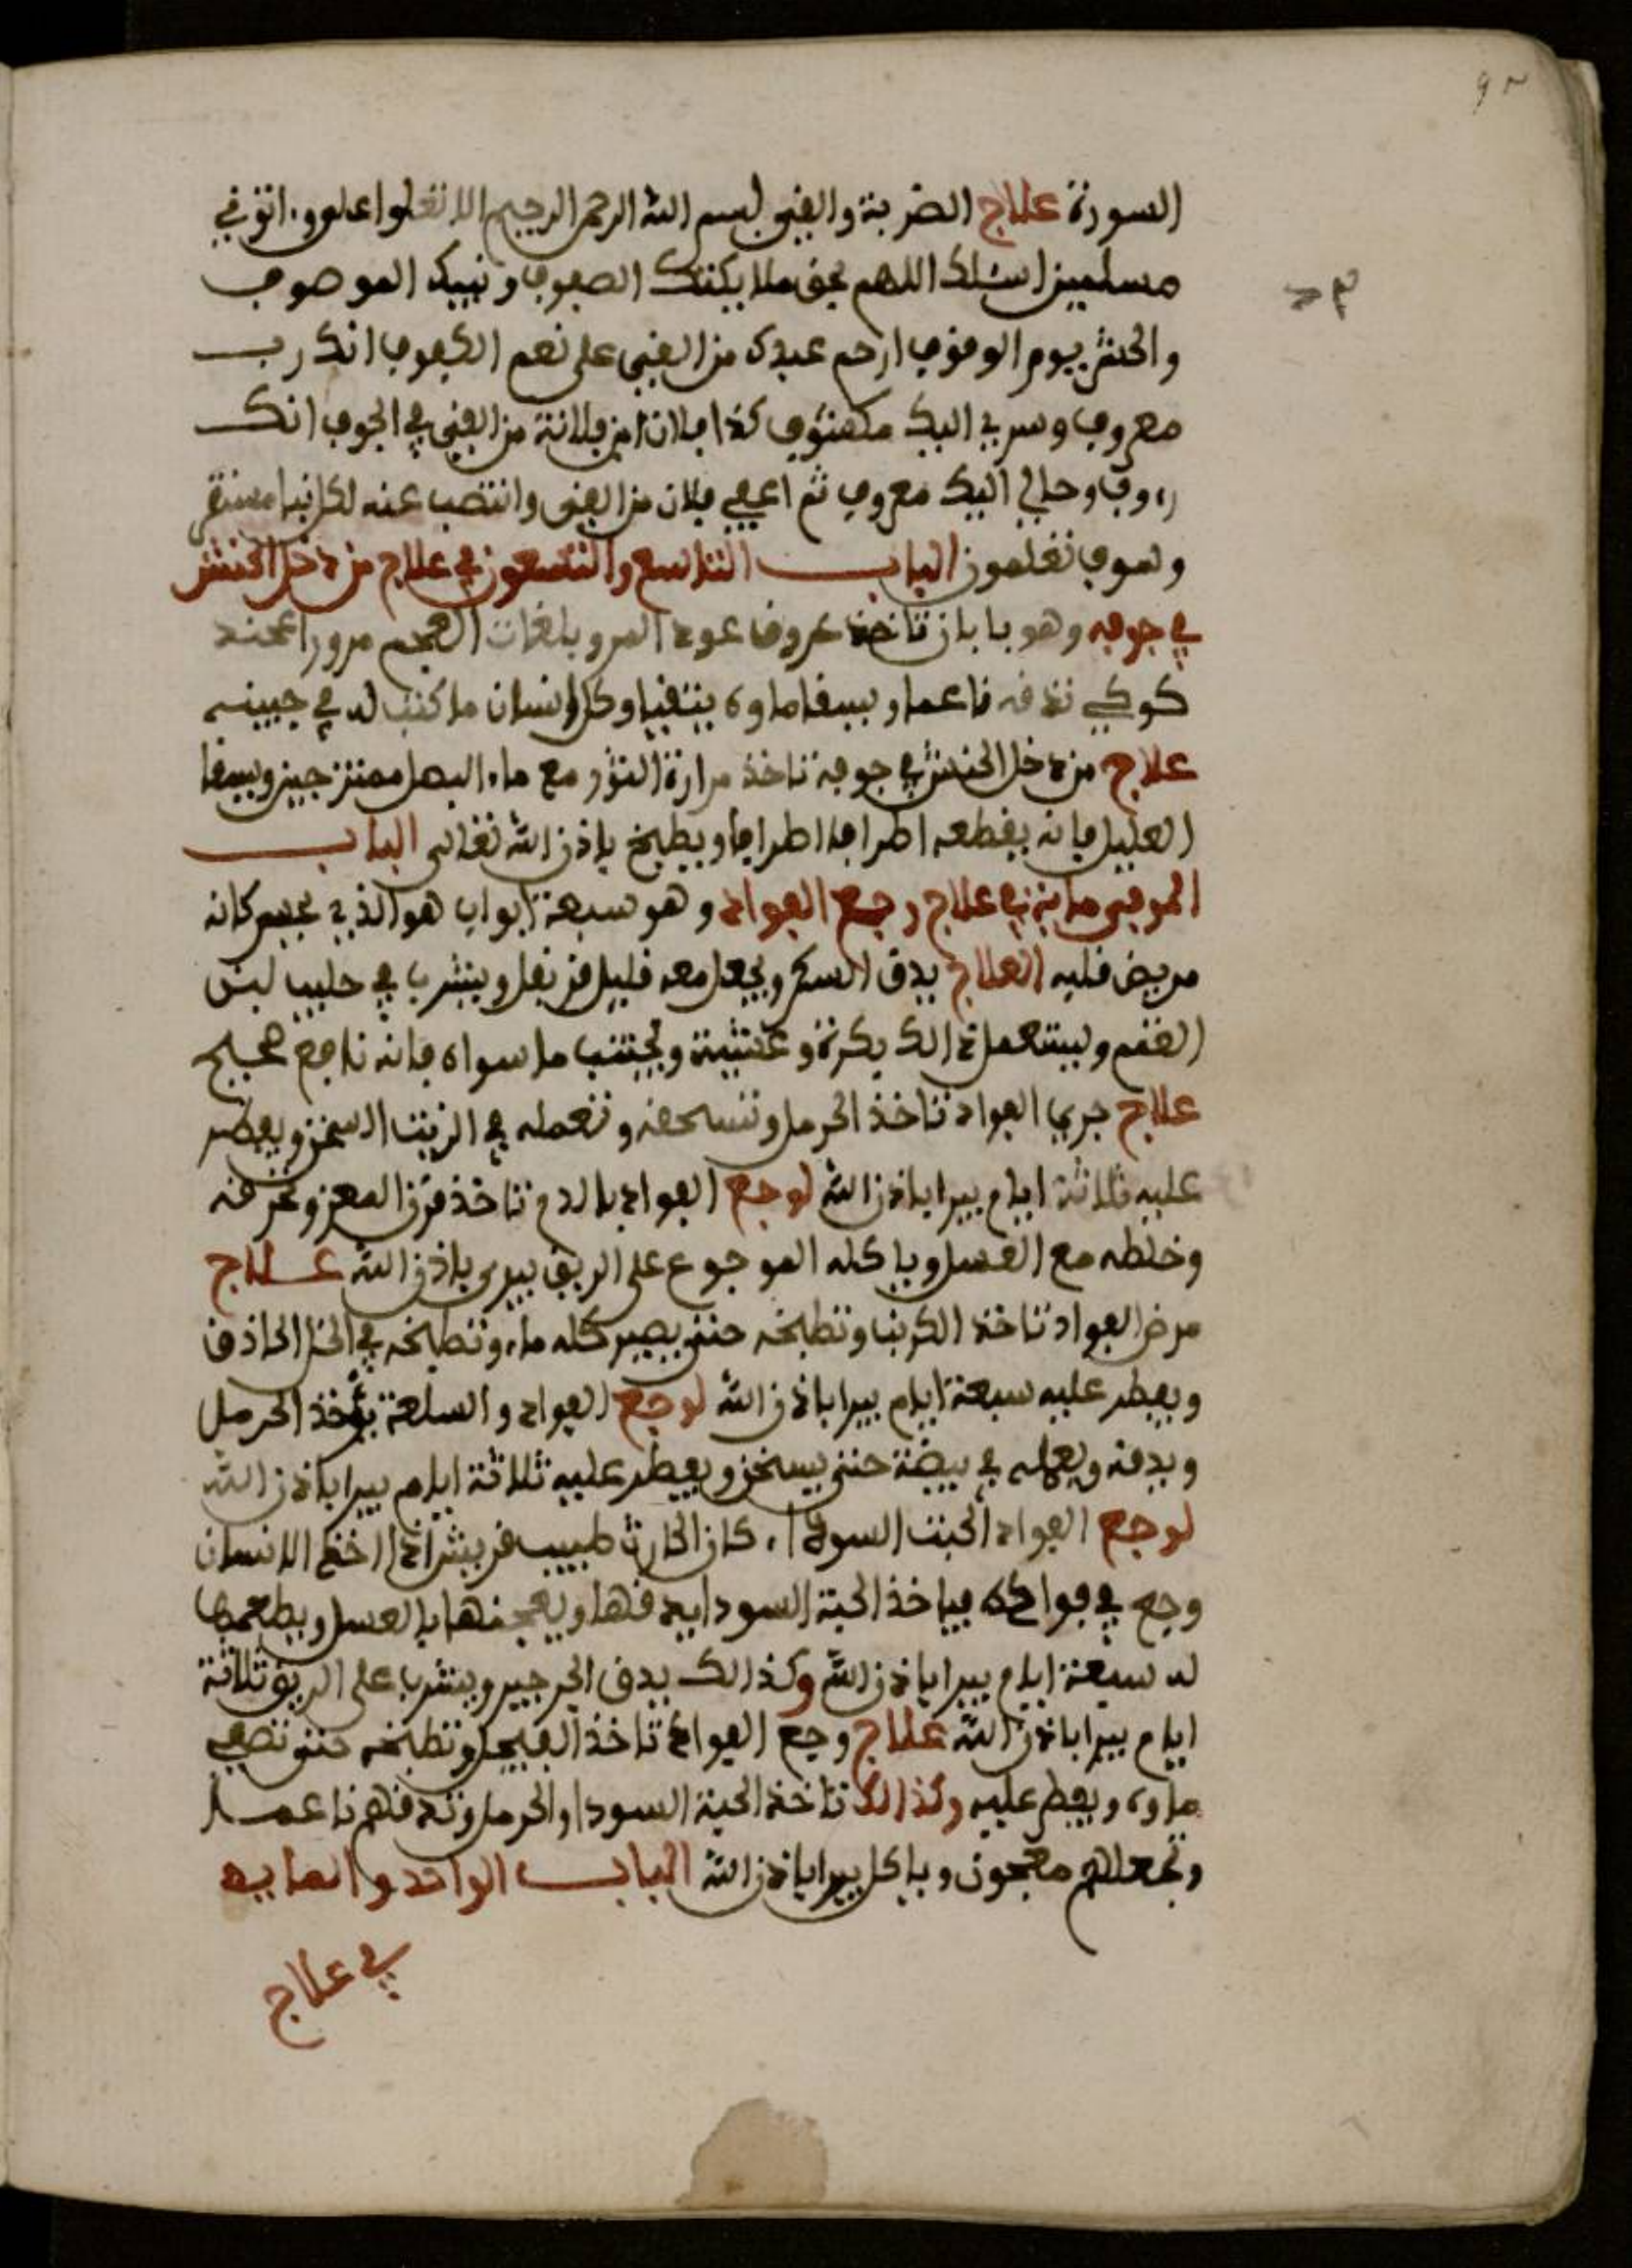 السورة علاج الضربة والفيى بسم الله الرحمن الرحيم الا تعلوا علي واتوني
مسلمين اسئلك اللهم بحق ملايكتك الصفوف ونبيك الموصوف
والحشر يوم الوقوف ارحم عبدك من الفيى على نعم الكفوف انك رب
معروف وسري اليك مكشوف كذا فلان ابن فلانة من الفيى في الجوف انك
رءوف وحالي اليك معروف ثم اعفي فلان من الفيى وانتصب عنه لكل نبإ مستقر
وسوف تعلمون الباب التاسع والتسعون في علاج من دخل الحنش
في جوفه وهو بابان تاخذ عروف عود المر وبلغات العجم
تدقه ناعما ويسقا ماوه يتقيا وكل انسان ما كتب له في جبينه
علاج من دخل الحنش في جوفه تاخذ مرارة الثور مع ماء البصل ممتزجين ويسقا
العليل فانه يقطعه اطرافا اطرافا ويطيح باذن الله تعالى الباب
الموفي ماية في علاج وجع الفواد وهو سبعة ابواب هو الذي يحس كانه
مريض قلبه العلاج يدق السكر ويجعل معه قليل من بقل ويشرب في حليب لبن
الغنم ويستعمل ذالك بكرة وعشية ويجتنب ما سواه فانه نافع صحيح
علاج جري الفواد تاخذ الحرمل وتسحقه وتعمله في الزيت السخن ويفطر
عليه ثلاثة ايام يبرا باذن الله لوجع الفواد بالدم تاخذ قرن المعز وتحرقه
وخلطه مع العسل وياكله الموجوع على الريق يبرى باذن الله علاج
مرض الفواد تاخذ الكرنب وتطبخه حتى يصير كله ماء وتطبخه في الخل الحاذق
ويفطر عليه سبعة ايام يبرا باذن الله لوجع الفواد والسلعة يؤخذ الحرمل
ويدقه ويعمله في بيضة حتى يسخن ويفطر عليه ثلاثة ايام يبرا باذن الله
لوجع الفواد الحبت السوداء كان الحارث طبيب قريش اذا اخذ الانسان
وجع في فواده فياخذ الحبة السودا يدقها ويعجنها بالعسل ويطعمها
له سبعة ايام يبرا باذن الله وكذالك يدق الجرجير ويشرب على الريق ثلاثة
ايام يبرا باذن الله علاج وجع الفواد تاخذ الفيجل وتطبخه حتى تصفي
ماوه ويفطر عليه وكذالك تاخذ الحبة السودا والحرمل وتدقهم ناعما
وتجعلهم معجون وياكل يبرا باذن الله الباب الواحد والمايه
في علاج